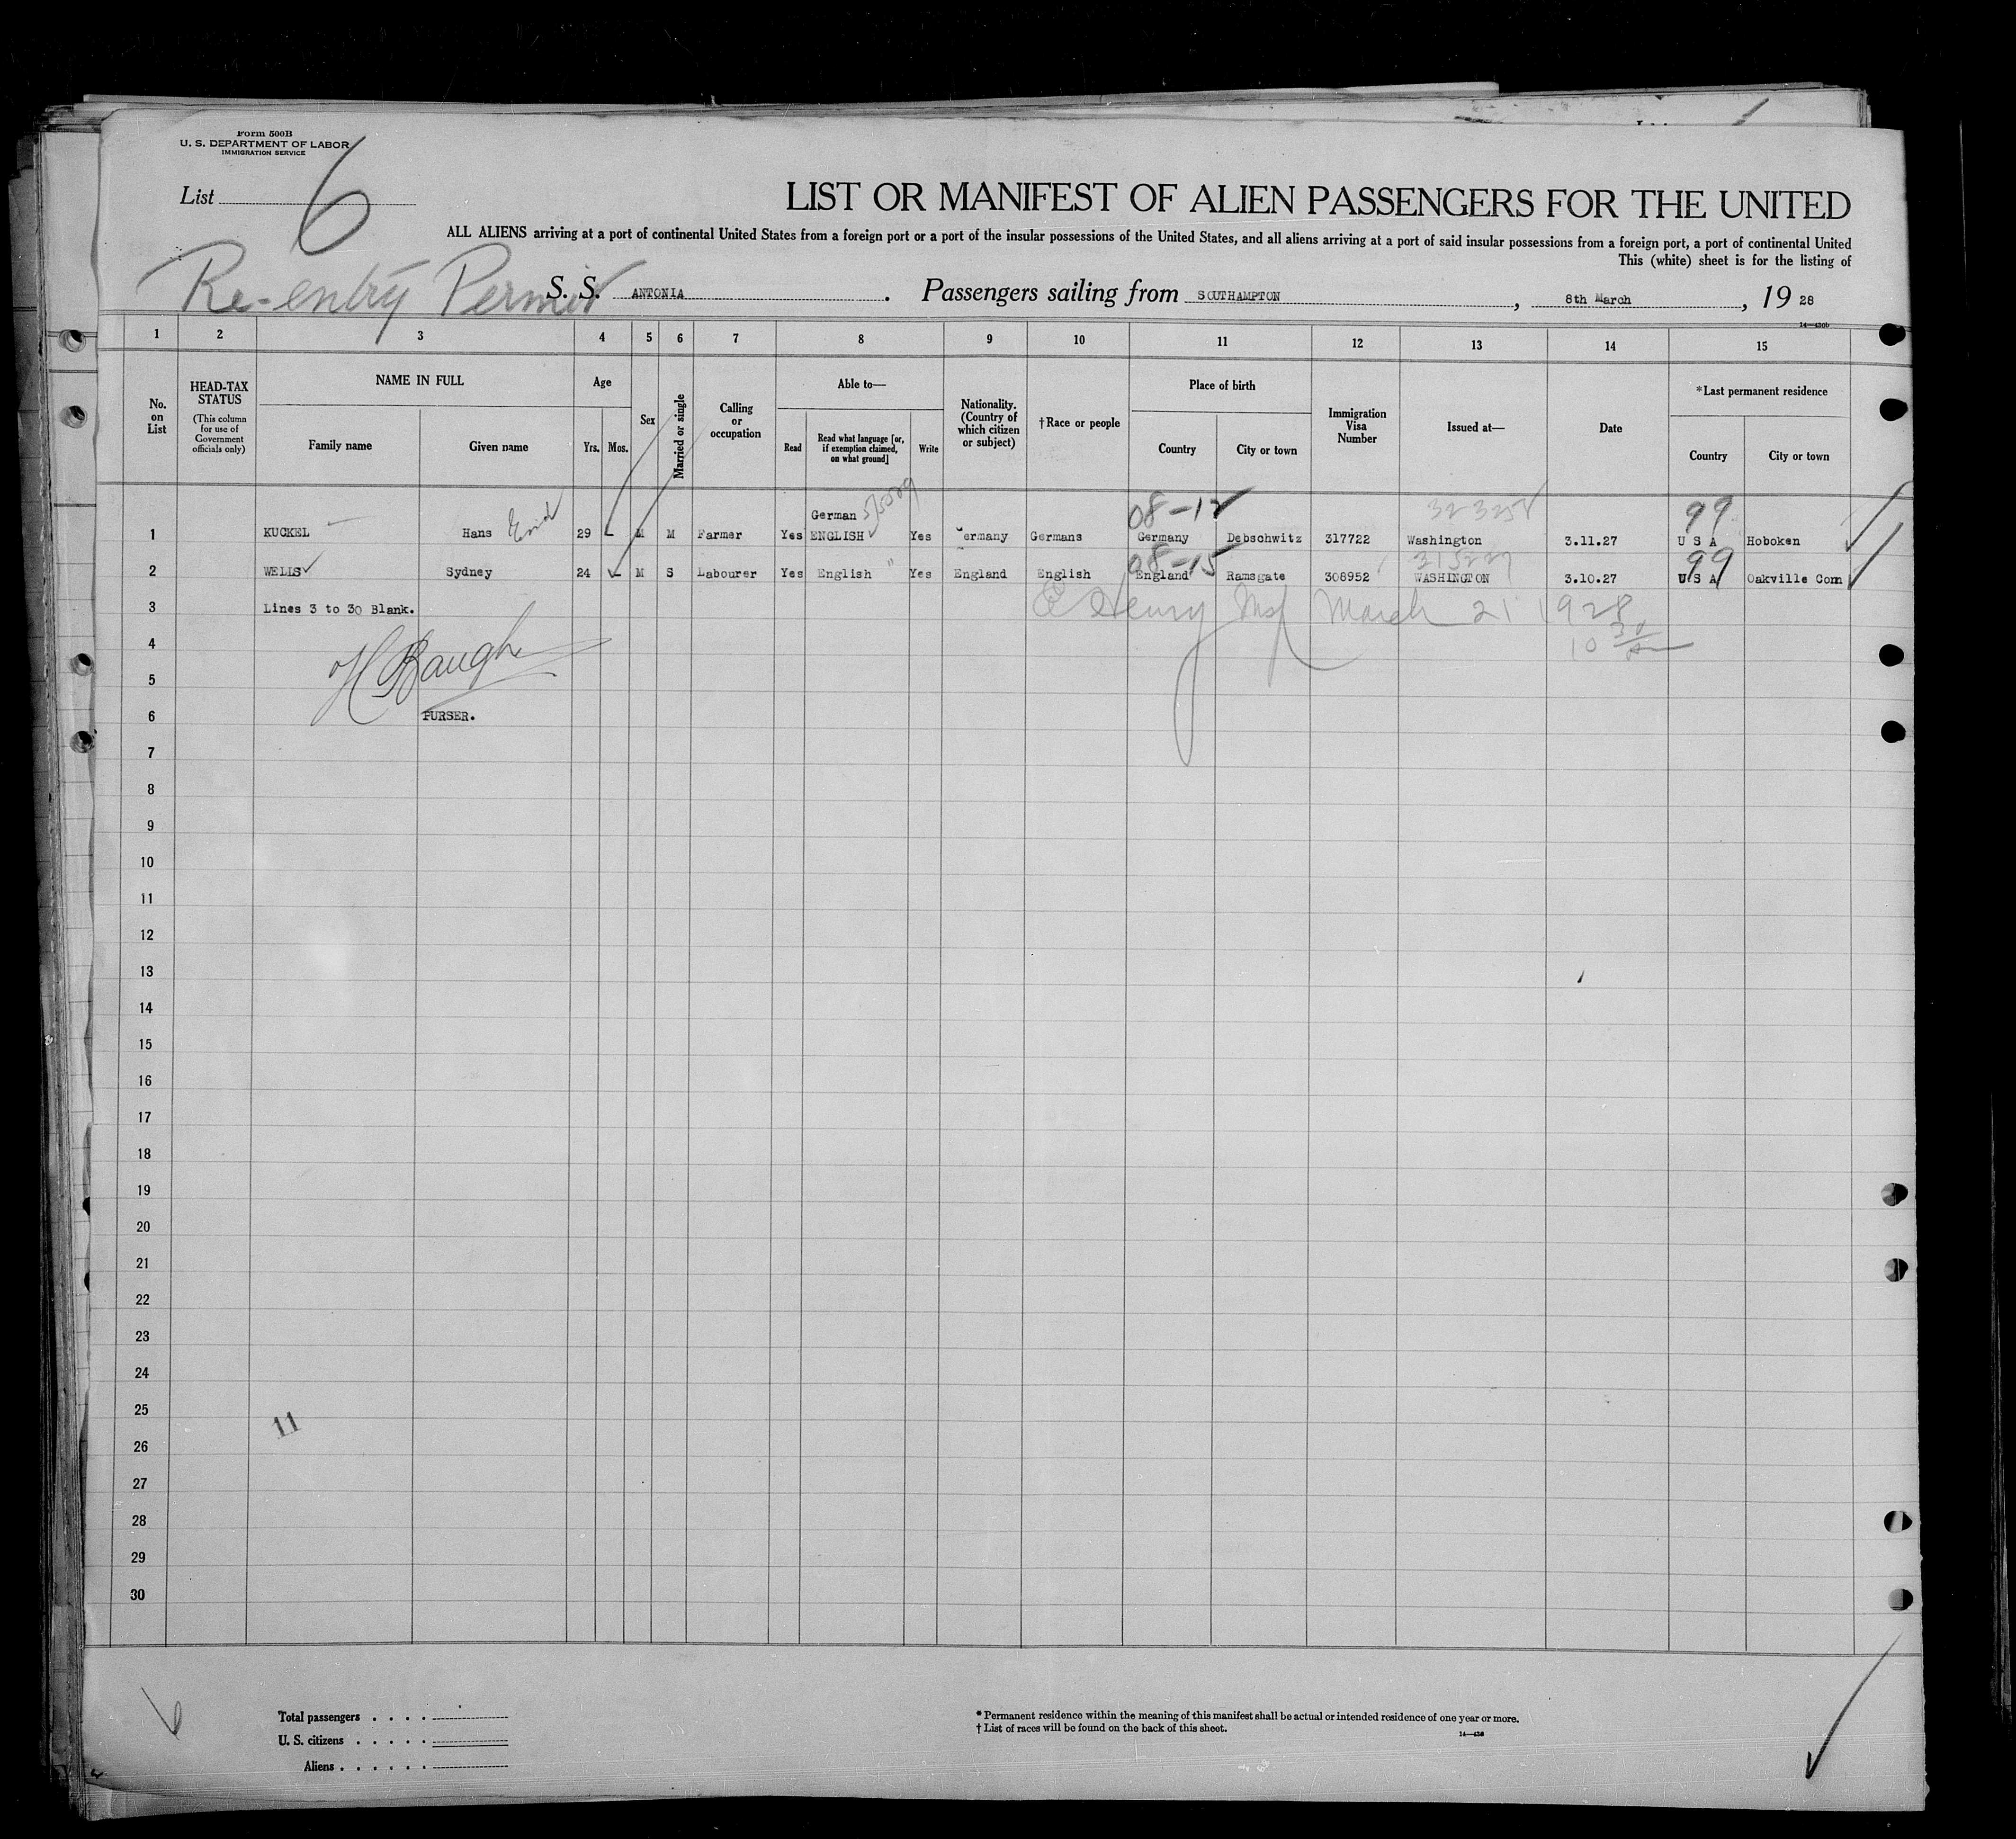 Form 500B
U. S. DEPARTMENT OF LABOR
IMMIGRATION SERVICE
List 6
LIST OR MANIFEST OF ALIEN PASSENGERS FOR THE UNITED
ALL ALIENS arriving at a port of continental United States from a foreign port or a port of the insular possessions of the United States, and all aliens arriving at a port of said insular possessions from a foreign port, a port of continental United
This (white) sheet is for the listing of
Re-entry Permit S. S. ANTONIA . Passengers sailing from SOUTHAMPTON , 8th March , 19 28
14—430b
1 2 3 4 5 6 7 8 9 10 11 12 13 14 15
No. on List
HEAD-TAX STATUS (This column for use of Government officials only)
NAME IN FULL
Family name Given name
Age
Yrs. Mos.
Sex
Married or single
Calling or occupation
Able to—
Read Read what language [or, if exemption claimed, on what ground] Write
Nationality. (Country of which citizen or subject)
†Race or people
Place of birth
Country City or town
Immigration Visa Number
Issued at—
Date
*Last permanent residence
Country City or town
08-12 99
1 KUCKEL Hans 29 M M Farmer Yes German ENGLISH Yes Germany Germans Germany Debschwitz 317722 Washington 3.11.27 U S A Hoboken
08-15 315227 99
2 WELLS Sydney 24 M S Labourer Yes English Yes England English England Ramsgate 308952 WASHINGTON 3.10.27 U S A Oakville Com
3 Lines 3 to 30 Blank. Henry March 21 1928
4 H Baugh 10 30
5
6 PURSER.
7
8
9
10
11
12
13
14
15
16
17
18
19
20
21
22
23
24
25
11
26
27
28
29
30
Total passengers . . . .
U. S. citizens . . . . .
Aliens . . . . . .
* Permanent residence within the meaning of this manifest shall be actual or intended residence of one year or more.
† List of races will be found on the back of this sheet.
14—430